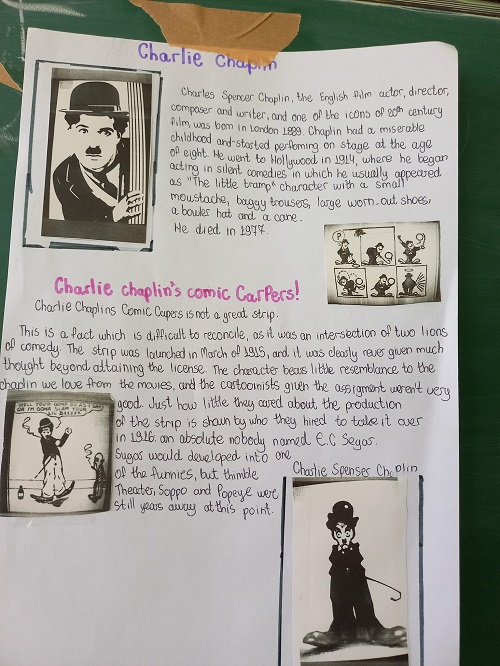 Charlie Chaplin
Charles Spencer Chaplin, the English film actor, director,
composer and writer, and one of the icons of 20th century
film, was born in London 1889. Chaplin had a miserable
childhood and started perfoming on stage at the age
of eight. He went to Hollywood in 1914, where he began
acting in silent comedies in which he usually appeared
as "The little tramp" character with a small
moustache, baggy trousers, large worn-out shoes,
a bowler hat and a cane.
He died in 1977.
?
Charlie chaplin's comic Carpers!
Charlie Chaplins Comic Capers is not a great strip.
This is a fact which is difficult to reconcile, as it was an intersection of two lions
of comedy. The strip was launched in March of 1915, and it was clearly never given much
thought beyond attaining the license. The character bears little resemblance to the
chaplin we love from the movies, and the cartooinists given the assigment weren't very
good. Just how little they cared about the production
of the strip is shown by who they hired to take it over
in 1916: an absolute nobody named E.C Segar.
Sugar would developed into one
of the funnies, but thimble
Theater, Sappo and Popeye were
still years away at this point.
Charlie Spenser Chaplin